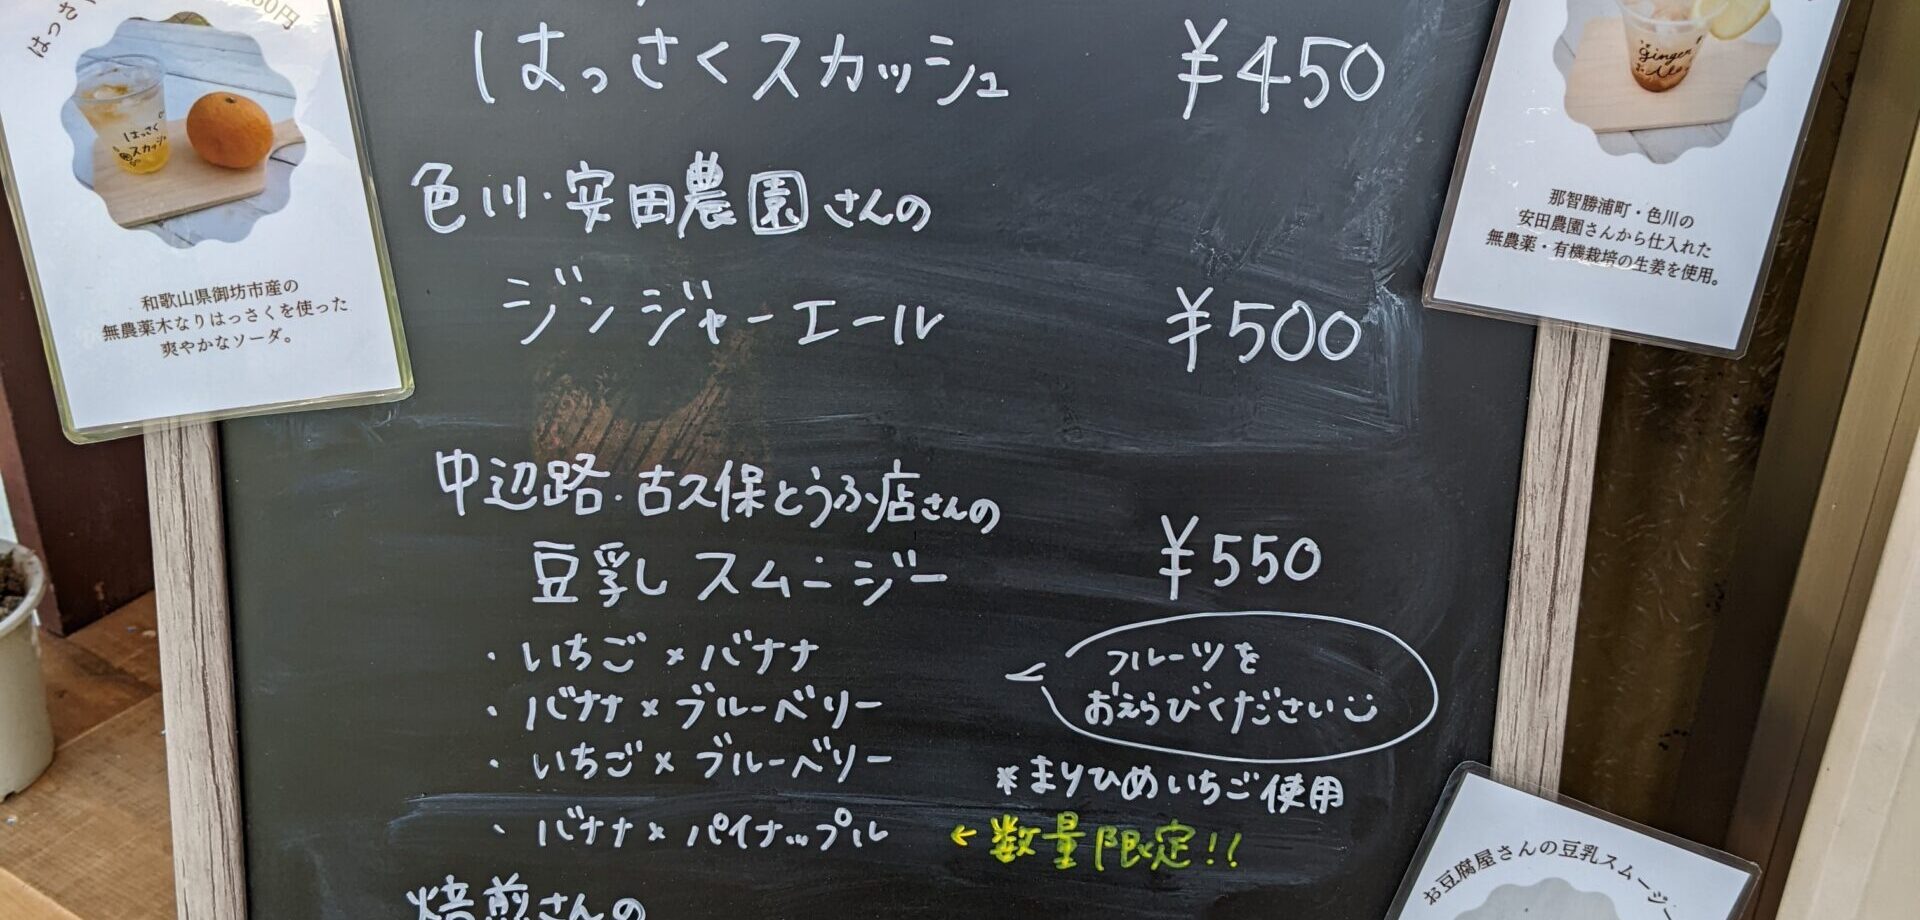 はっさくスカッシュ ¥450
色川・安田農園さんの
ジンジャーエール ¥500
中辺路・古久保とうふ店さんの
豆乳スムージー ¥550
・いちご×バナナ
・バナナ×ブルーベリー
・いちご×ブルーベリー
・バナナ×パイナップル
フルーツを
おえらびください
※まりひめいちご使用
←数量限定!!
焙煎さんの
はっさく
スカッシュ
和歌山県御坊市産の
無農薬木なりはっさくを使った
爽やかなソーダ。
ginger
那智勝浦町・色川の
安田農園さんから仕入れた
無農薬・有機栽培の生姜を使用。
お豆腐屋さんの豆乳スムージー